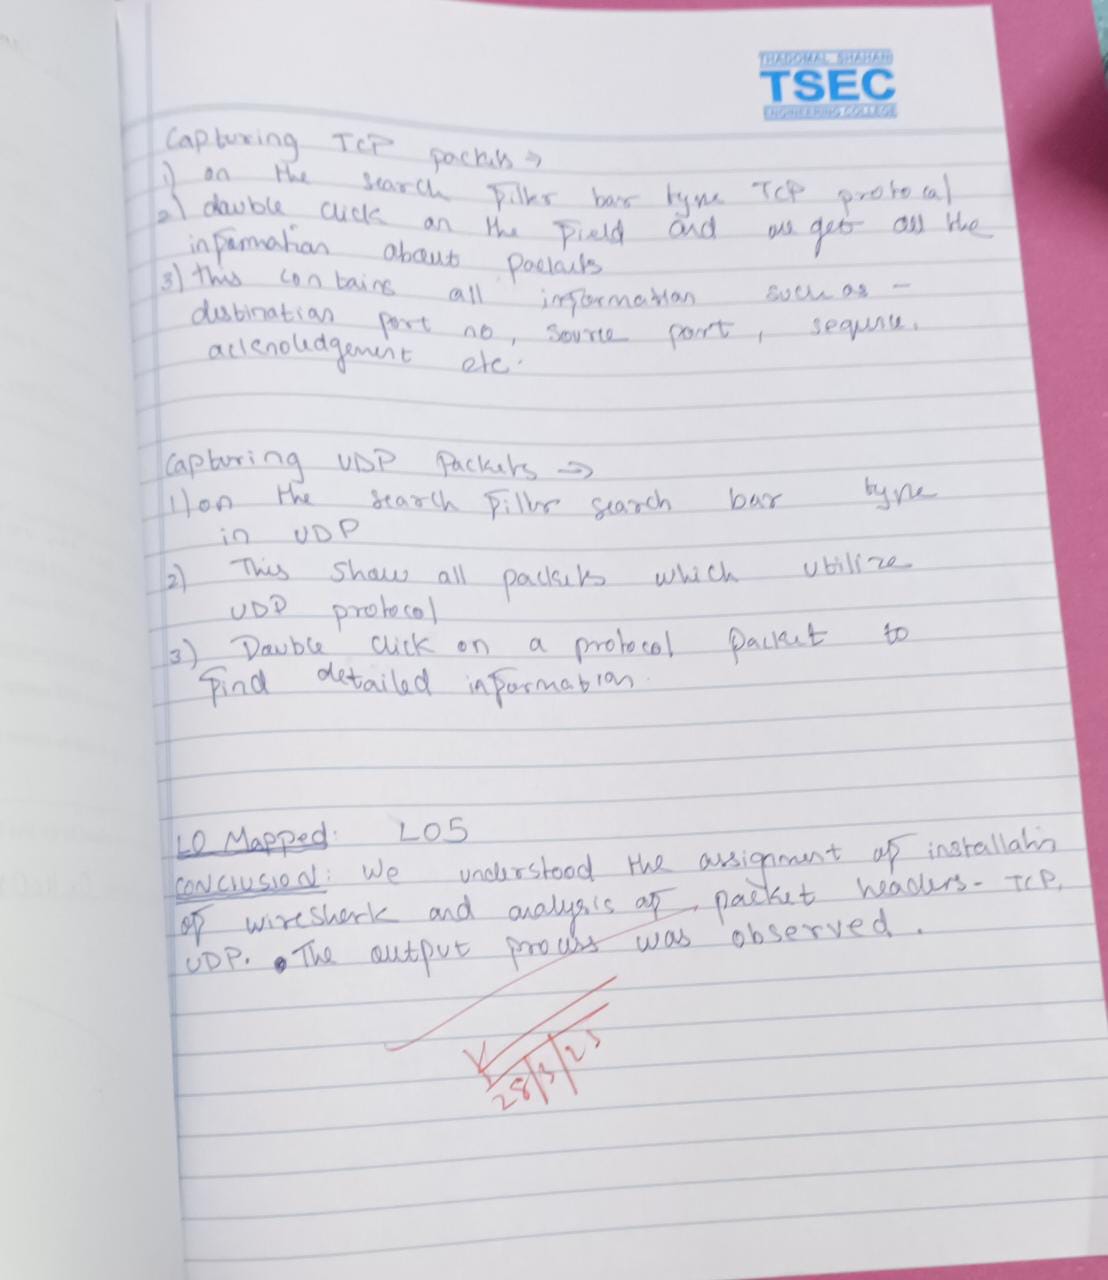 THADOMAL SHAHANI
TSEC
ENGINEERING COLLEGE
Capturing TCP packets →
1) on the search filter bar type TCP protocal
2) double click on the field and we get all the
information about packets
3) this contains all information such as -
distination port no, source port, sequence.
acknoledgement etc.
Capturing UDP Packets →
1) on the search filter search bar type
in UDP
2) This show all packets which utilize
UDP protocol
3) Double click on a protocol packet to
find detailed information.
LO Mapped: LO5
CONCLUSION: We understood the assignment of installatin
of wireshark and analysis of packet headers- TCP,
UDP. The output process was observed.
28/3/25